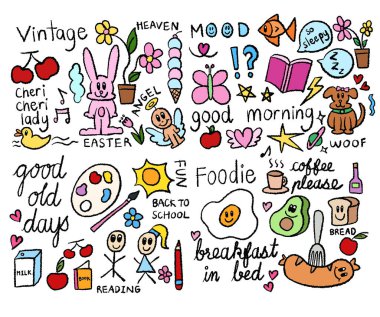 Vintage
HEAVEN
cheri
cheri
lady
ANGEL
EASTER
MOOD
!?
so
sleepy
z z z
good morning
WOOF
good
old
days
FUN
BACK TO
SCHOOL
MILK
BOOK
READING
Foodie
coffee
please
BREAD
breakfast
in bed